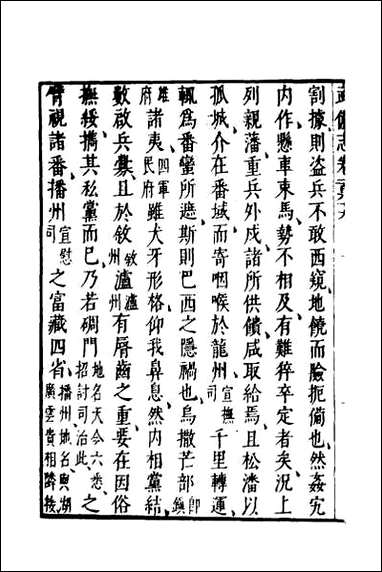 武備志卷
割據則盜兵不敢西窺地饒而險扼也然姦宄
内作懸車束馬勢不相及有難猝卒定者矣况上
列親藩重兵外戍諸所供饋咸取給焉且松潘以
孤城介在番域而寄咽喉於龍州宣撫司千里轉運
輒爲番蠻所遮斯則巴西之隱禍也烏撒芒部卽鎮
雄府諸夷四軍民府雖犬牙形格仰我鼻息然内相黨結
數啟兵釁且於敘敘州瀘瀘州有脣齒之重要在因俗
撫綏攜其私黨而已乃若碉門地名天全六番招討司治此之
臂視諸番播州宣慰司之富藏四省播州地名與湖廣雲貴相隣接